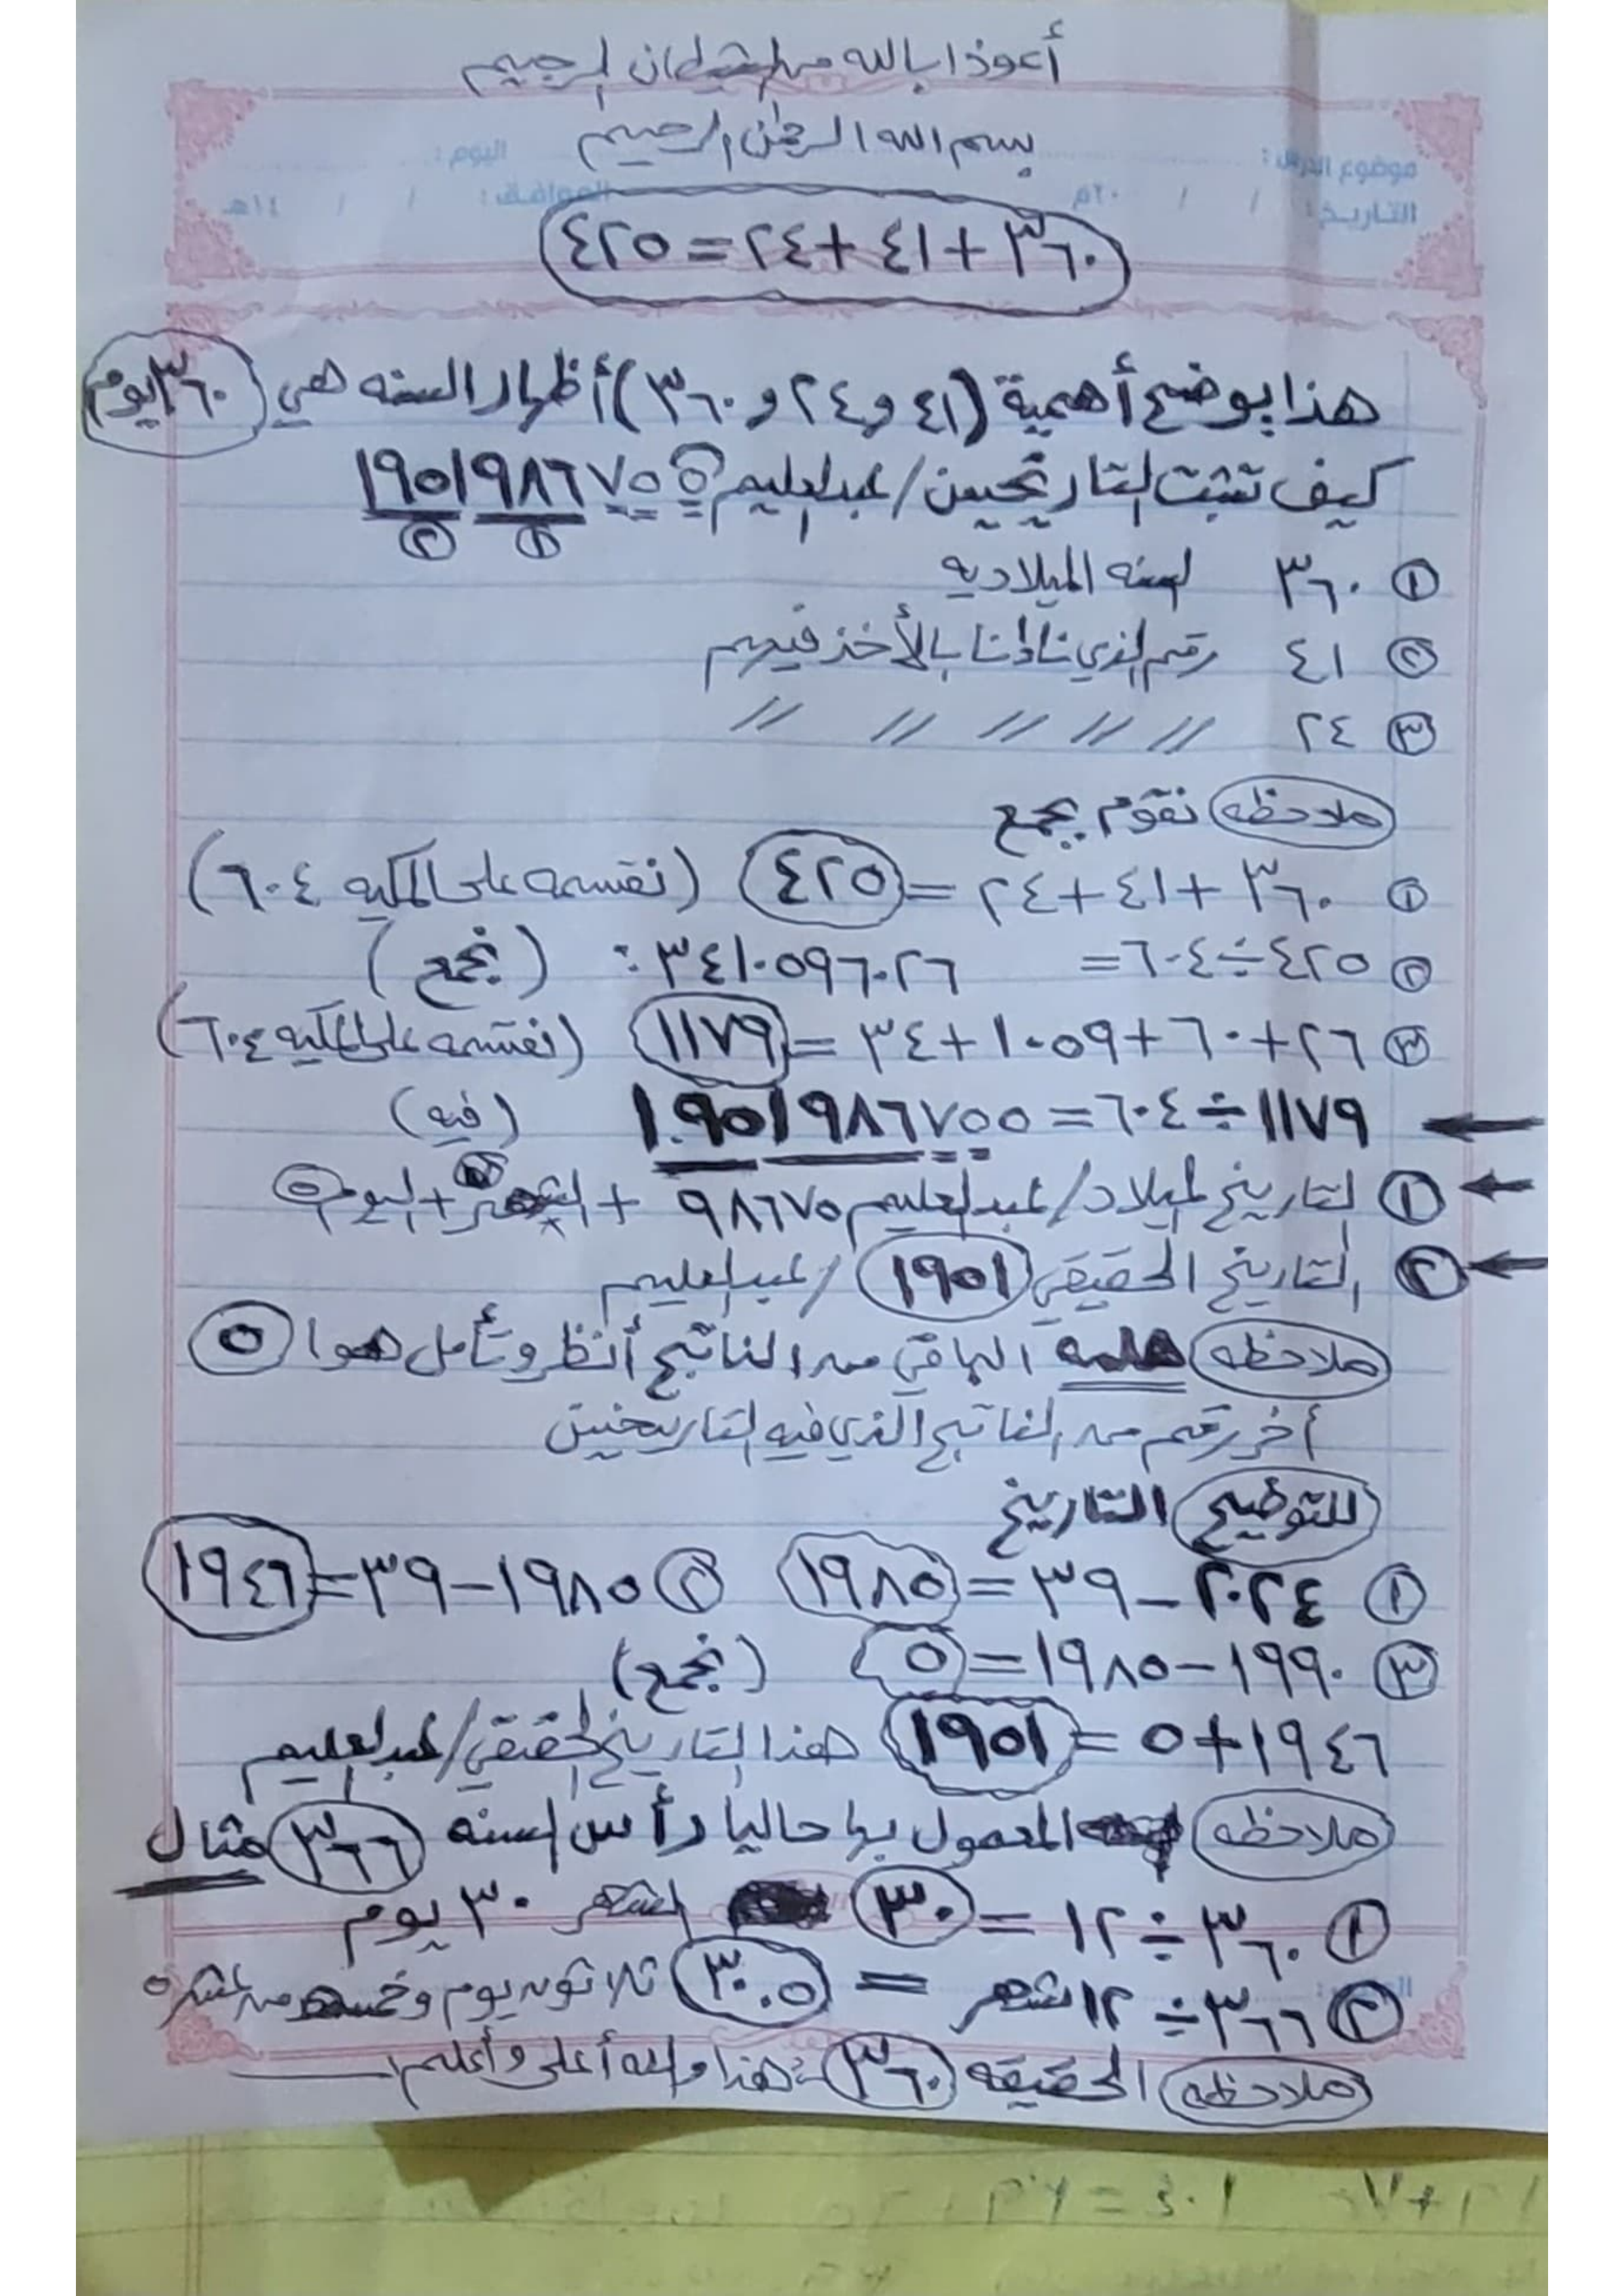 أعوذ بالله من الشيطان الرجيم
بسم الله الرحمن الرحيم
موضوع الدرس : اليوم :
التاريخ : / / ٢٠م الموافق : / / ١٤هـ
٣٦٠+٤١+٢٤=٤٢٥
هذا يوضح أهمية (٤١ و ٢٤ و ٣٦٠) أظهار السنه هي ٣٦٠ يوم
كيف تثبت التاريخين / عبدالعليم ١٩٥١٩٨٦٧٥٥
② ①
① ٣٦٠ لسنه الميلاديه
② ٤١ رقم الذي ناذنا بالأخذ فيهم
③ ٢٤ // // // // //
ملاحظه نقوم بجمع
① ٣٦٠+٤١+٢٤=٤٢٥ (نقسمه على المكيه ٦٠٤)
② ٤٢٥÷٦٠٤= ٣٤١٠٥٩٦٠٢٦ : (نجمع)
③ ٢٦+٦٠+١٠٥٩+٣٤=١١٧٩ (نقسمه على المكيه ٦٠٤)
١١٧٩÷٦٠٤=١.٩٥١٩٨٦٧٥٥ (فيه)
① لتاريخ لميلاد / عبدالعليم ٩٨٦٧٥ + الشهر + اليوم ٥
② التاريخ الحقيقي ١٩٥١ / عبدالعليم
ملاحظه هلمه الباقي من الناتج أنظر وتأمل هوا ٥
أخر رقم من الناتج الذي فيه التاريخين
للتوظيح التاريخ
① ٢٠٢٤-٣٩=١٩٨٥ ② ١٩٨٥-٣٩=١٩٤٦
③ ١٩٩٠-١٩٨٥=٥ (نجمع)
١٩٤٦+٥=١٩٥١ هذا التاريخ الحقيقي / عبدالعليم
ملاحظه المعمول بها حاليا رأس السنه ٣٦٦ مثال
① ٣٦٠÷١٢=٣٠ الشهر ٣٠ يوم
② ٣٦٦÷١٢ شهر = ٣٠.٥ ثلاثون يوم وخمسه من عشره
ملاحظه الحقيقه ٣٦٠ هذا والله أعلى وأعلم